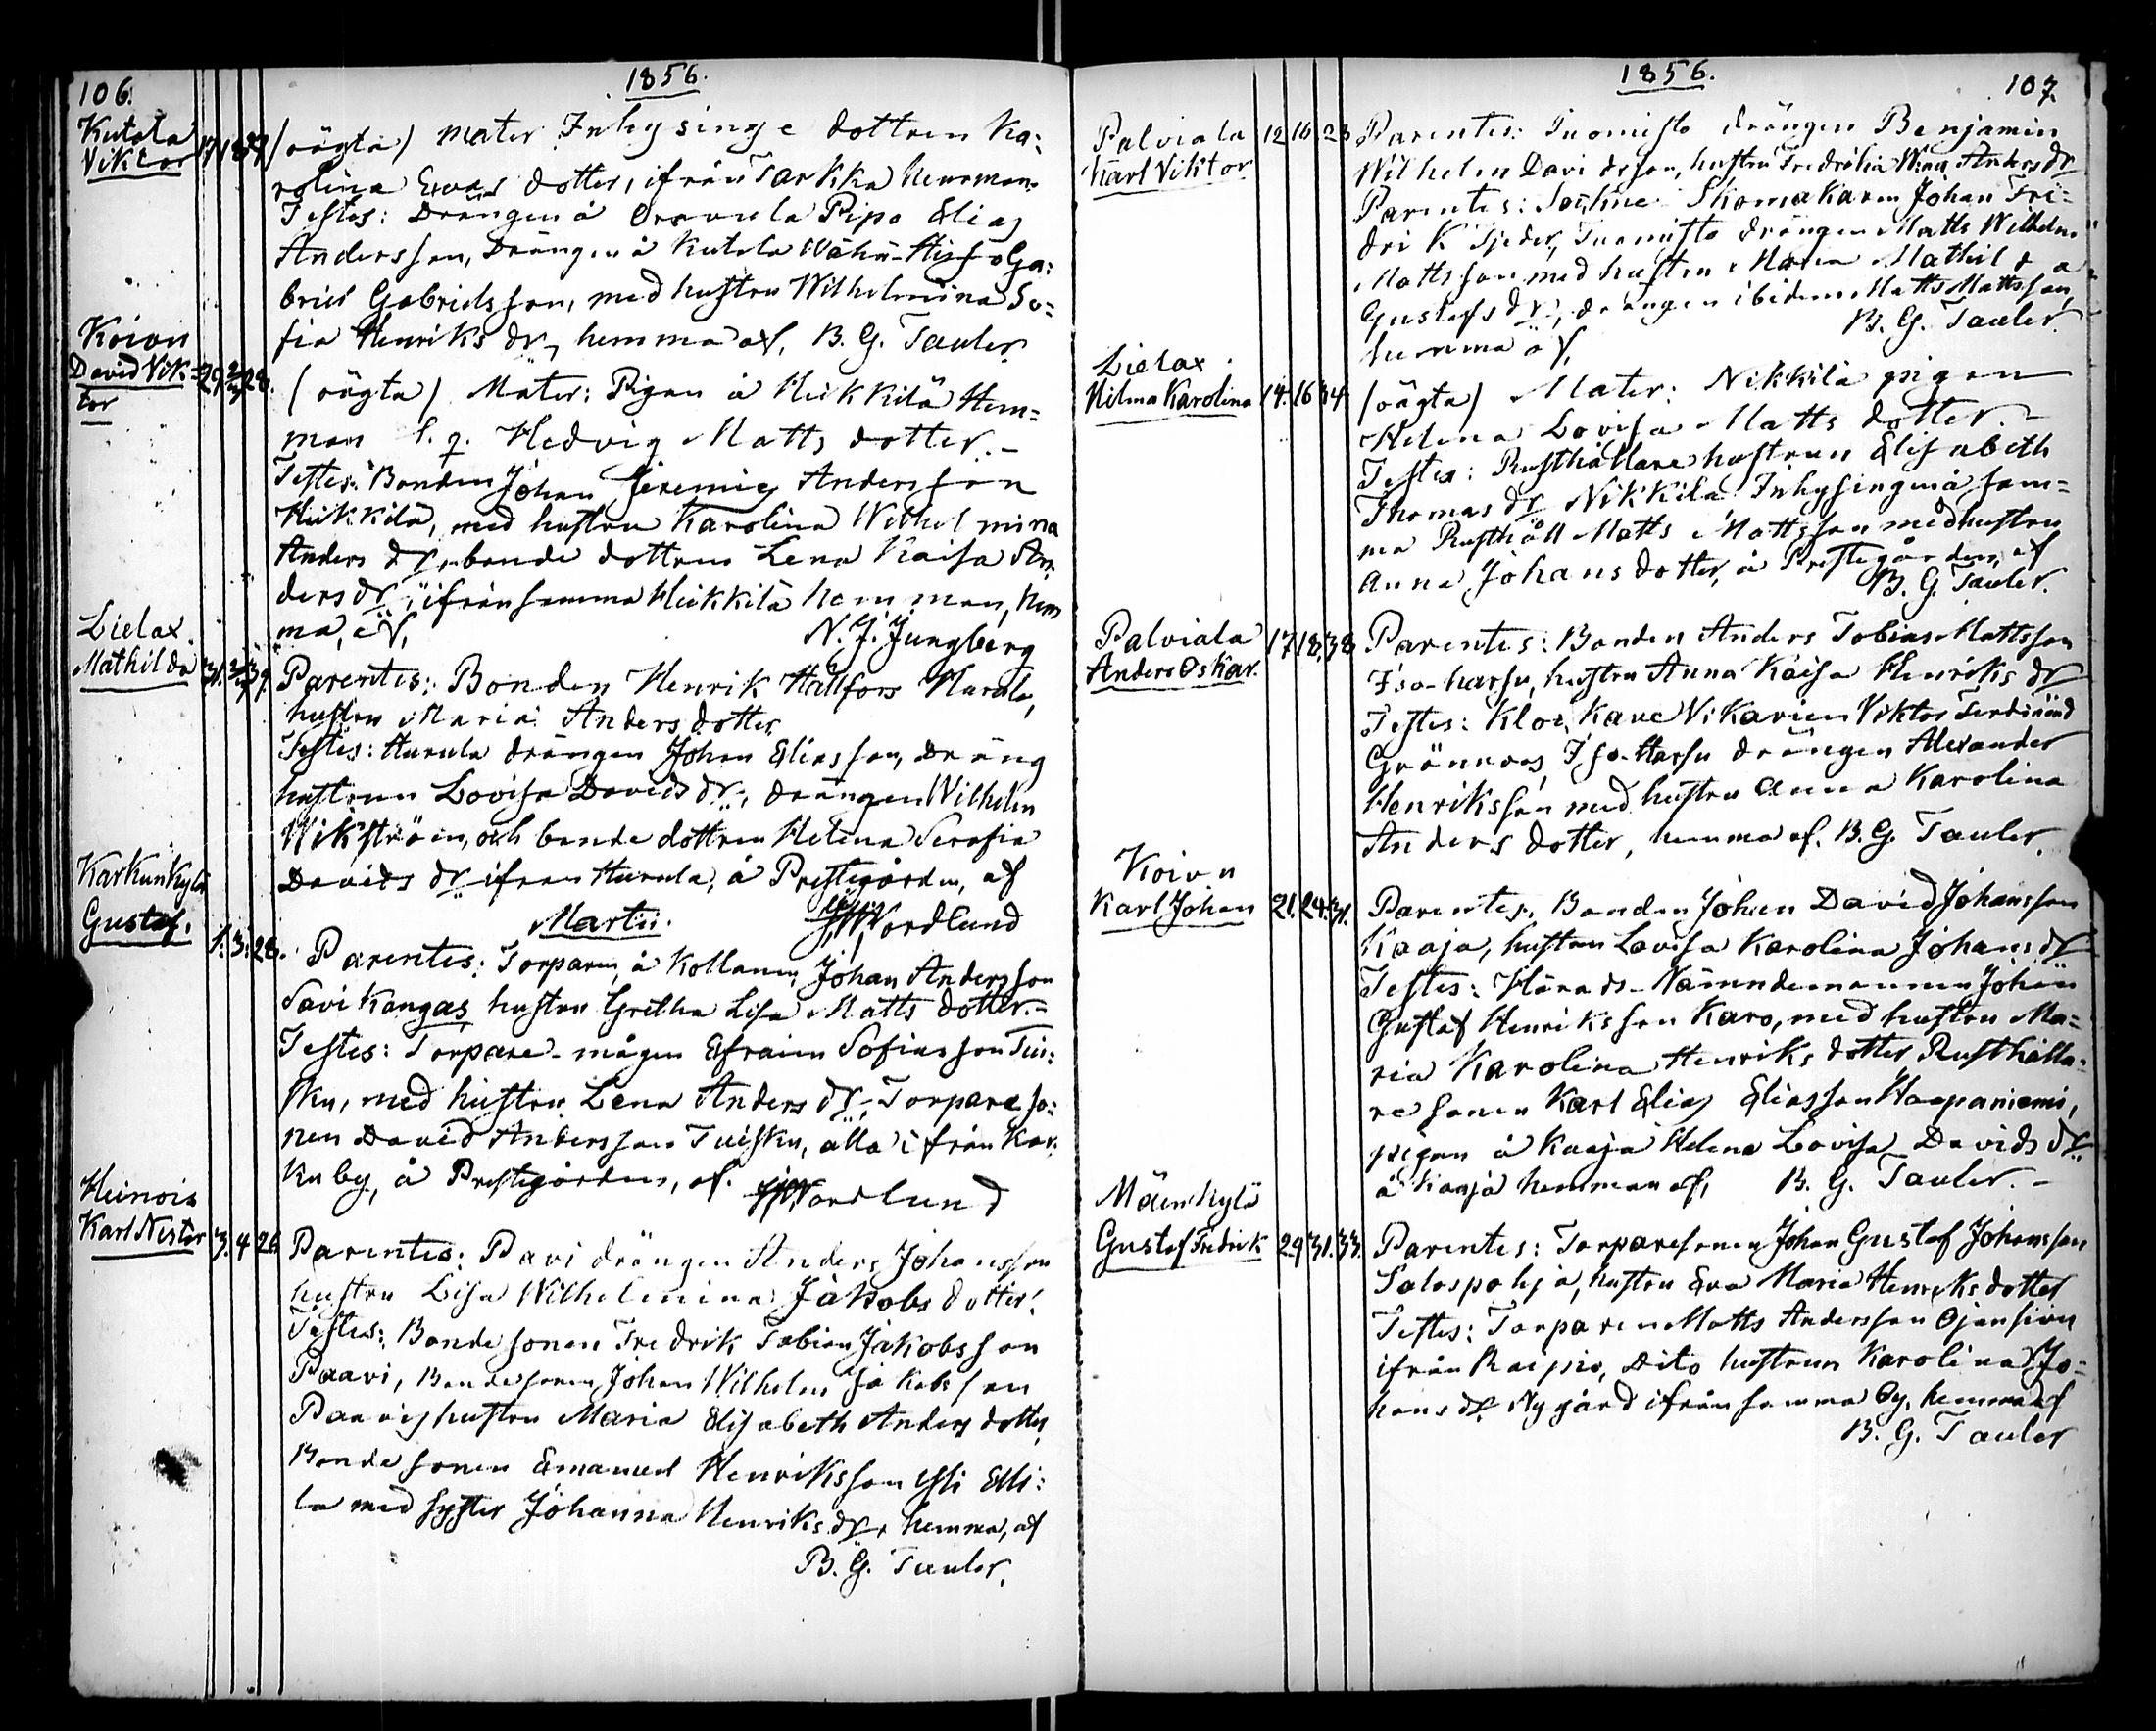 106.
1856.
Kutala
Viktor 17 18 27
(oägta) Mater Inhysinge dottren Ka:
rolina Evas dotter, ifrån Tarkka hemman.
Testes: Drängen å Oravula Pipo Elias
Andersson, Drängen å Kutala Wähä-Hissa Ga:
briel Gabrielsson, med hustru Wilhelmina So=
fia Henriks dr, hemma af, B. G. Tauler.
Koivu
David Vik=
tor 29 2/3 28.
(oägta) Mater: Pigan å Heikkilä Hem=
man l. q. Hedvig Matts dotter.-
Testes: Bonden Johan Jeremias Andersson
Heikkilä, med hustru Karolina Wilhelmina
Anders dr, bonde dottren Lena Kaisa An=
ders dr, ifrån samma Heikkilä hemman, hem
ma, af,
N. J. Jungberg
Lielax.
Mathilda 31.
Parentes: Bonden Henrik Hallfors Hurula,
hustru Maria Anders dotter
Testes: Hurula drängen Johan Eliasson, dräng
hustrun Lovisa Davids dr, drängen Wilhelm
Wikström, och bonde dottren Helena Serafia
Davids dr ifrån Hurula, å Prestegården, af
Nordlund
Martii.
Karkunkylä
Gustaf. 1. 3. 28.
Parentes: Torparen, å Kollanen, Johan Andersson
Savikangas hustru Gretha Lisa Matts dotter.-
Testes: Torpare-mågen Efraim Sofiasson Tui:
sku, med hustru Lena Anders dr, Torpare so:
nen David Andersson Tuisku, alla ifrån Kar:
kuby, å Prestegården, af.
Nordlund
Heinois
Karl Nestor 3. 4 26
Parentes: Pavi drängen Anders Johansson
hustru Lisa Wilhelmina Jakobs dotter.
Testes: Bonde sonen Fredrik Tobias Jakobsson
Paavi, Bondesonen Johan Wilhelm Jakobsson
Paavis hustru Maria Elisabeth Anders dotter,
Bonde sonen Emanuel Henriksson Yli Elli:
la med syster Johanna Henriks dr, hemma, af
B. G. Tauler.
1856.
107.
Palviala
Karl Viktor 12 16 23
Parentes: Tuomisto drängen Benjamin
Wilhelm Davidsson, hustru Fredrika Wilna Anders dr
Parentes: Sockne Skomakaren Johan Fre=
drik Tjeder, Tuomisto drängen Matts Wilhelm
Mattsson med hustru Maria Mathilda
Gustafs dr, drängen ibidem Matts Mattsson,
hemma af,
B. G. Tauler.
Lielax.
Hilma Karolina 14. 16 34
(oägta) Mater: Nikkilä pigan
Helena Lovisa Matts dotter.-
Testes: Rusthållare hustrun Elisabeth
Thomas dr Nikkilä Inhysing å sam=
ma Rusthåll Matts Mattsson med hustru
Anna Johans dotter, å Prestegården, af
B. G. Tauler.
Palviala
Anders Oskar. 17 18 38
Parentes: Bonden Anders Tobias Mattsson
Iso-harsu, hustru Anna Kaisa Henriks dr
Testes: Klockare Vikarien Viktor Ferdinand
Grönroos, Iso-Harsu drängen Alexander
Henriksson med hustru Anna Karolina
Anders dotter, hemma af. B. G. Tauler.
Koivu
Karl Johan 21. 24. 31.
Parentes, Bonden Johan David Johansson
Kaaja, hustru Lovisa Karolina Johans dr
Testes: Härads-Nämndemannen Johan
Gustaf Henriksson Karo, med hustru Ma=
ria Karolina Henriks dotter Rusthålla=
re sonen Karl Elias Eliasson Haapaniemi,
pigan å Kaaja Helena Lovisa Davids dr
å Kaaja hemman af, B. G. Tauler.-
Mäenkylä
Gustaf Fredrik 29 31. 33.
Parentes: Torparesonen Johan Gustaf Johansson
Salospohja, hustru Eva Maria Henriks dotter
Testes: Torparen Matts Andersson Ojansivu
ifrån Raipio, Dito hustrun Karolina Jo=
hans dr Nygård ifrån samma By, hemma af
B. G. Tauler